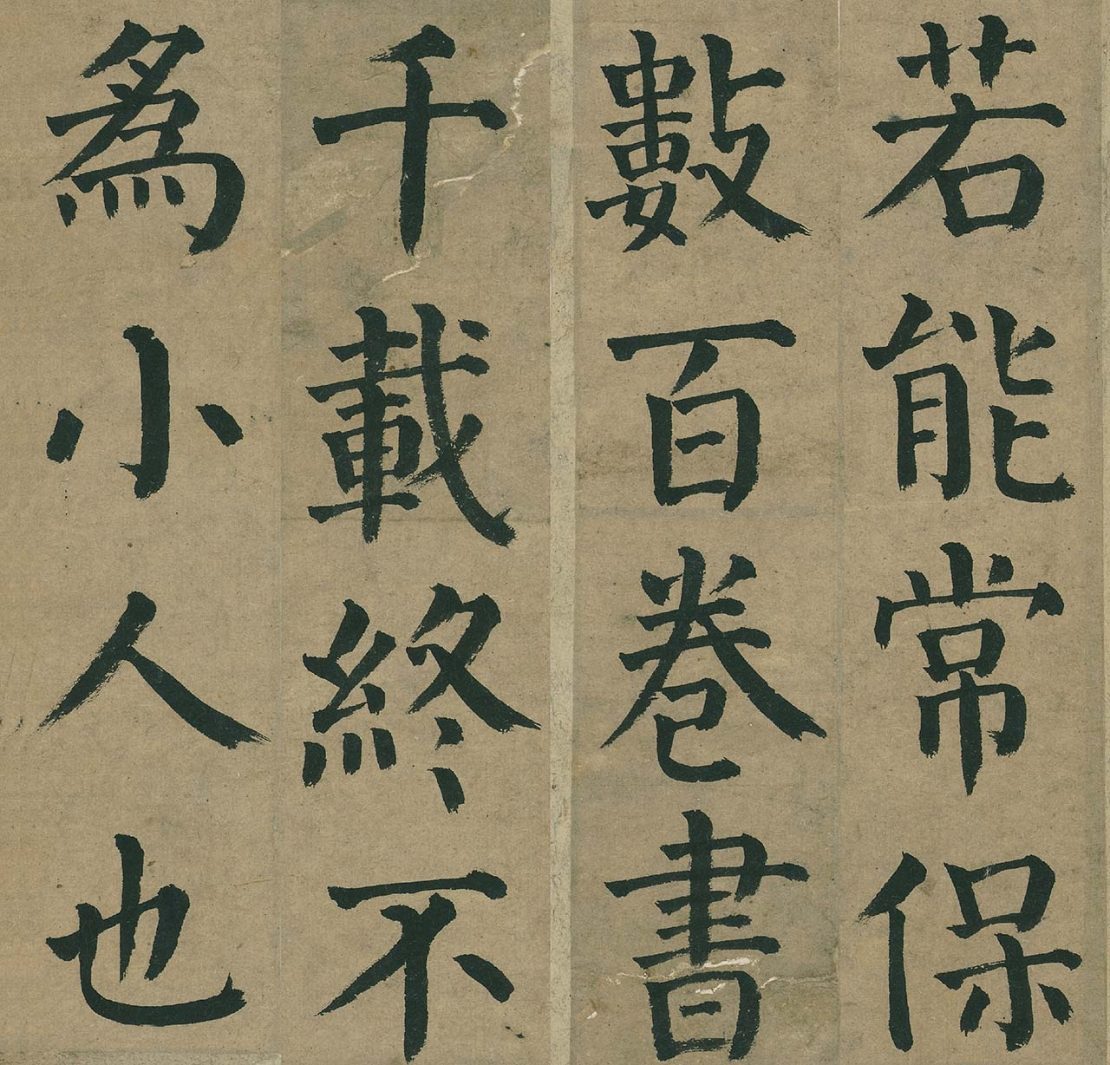 若能常保
數百卷書
千載終不
爲小人也